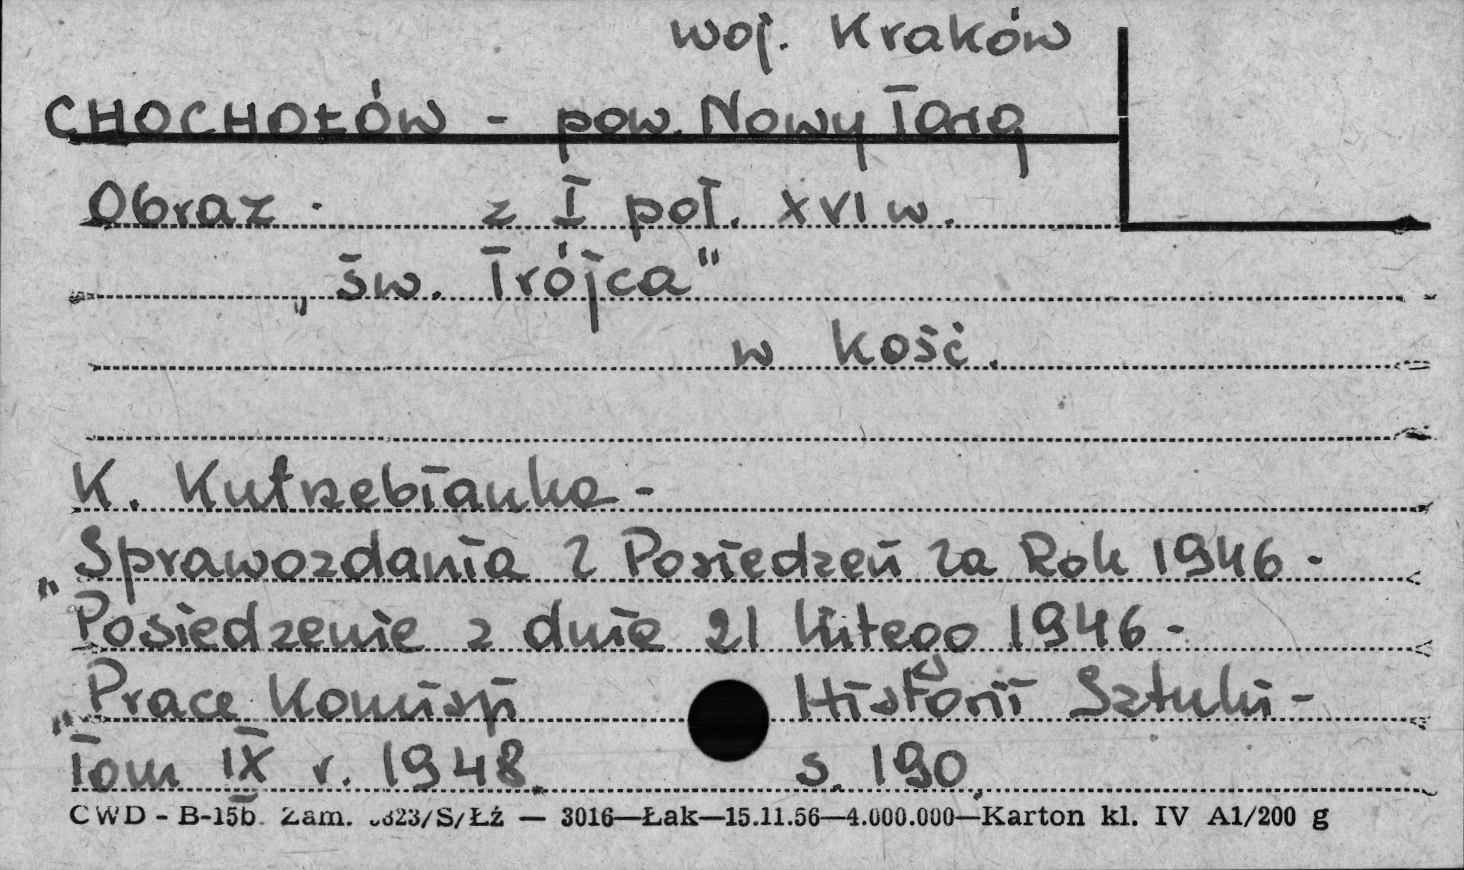 woj. Kraków
CHOCHOŁÓW - pow. Nowy Targ
Obraz. z I poł. XVI w.
„św. Trójca"
w kość.
K. Kutrzebianka -
„Sprawozdania z Posiedzeń za Rok 1946 -
Posiedzenie z dnia 21 lutego 1946 -
„Prace Komisji Historii Sztuki -
Tom IX r. 1948. s. 190.
CWD - B-15b. Zam. 323/S/Łź — 3016—Łak—15.11.56—4.000.000—Karton kl. IV A1/200 g